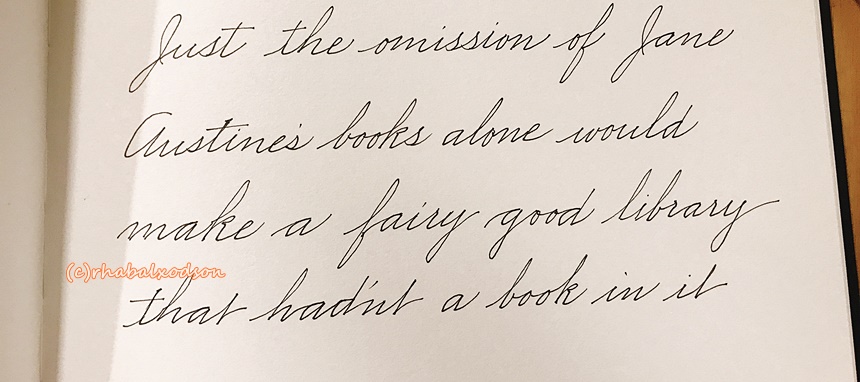 Just the omission of Jane
Austine's books alone would
make a fairy good library
(c)rhabalxodson
that had'nt a book in it